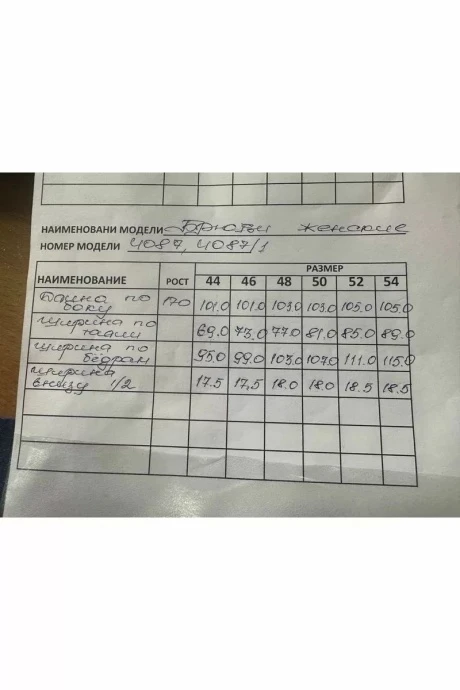 НАИМЕНОВАНИ МОДЕЛИ Брюки женские
НОМЕР МОДЕЛИ 4087, 4087/1
НАИМЕНОВАНИЕ РОСТ РАЗМЕР
44 46 48 50 52 54
Длина по боку 170 101.0 101.0 103.0 103.0 105.0 105.0
ширина по талии 69.0 73.0 77.0 81.0 85.0 89.0
ширина по бедрам 95.0 99.0 103.0 107.0 111.0 115.0
ширина внизу 1/2 17.5 17,5 18.0 18.0 18.5 18.5